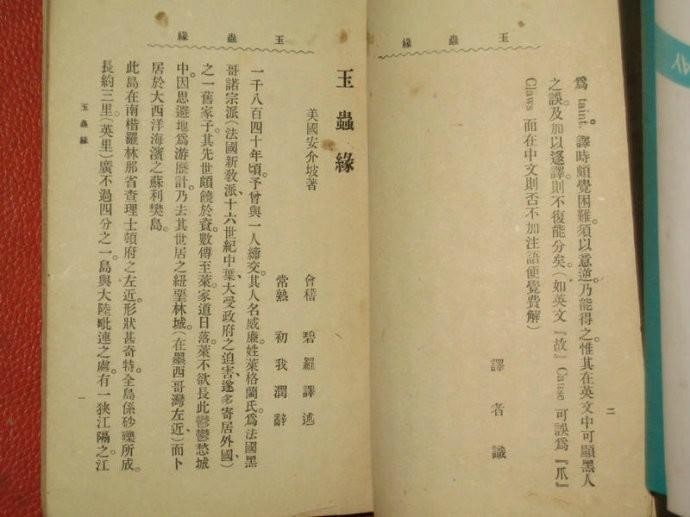 玉蟲緣
爲 taint。譯時頗覺困難。須以意逆。乃能得之。惟其在英文中可顯黑人
之誤。及加以遂譯。則不復能分矣（如英文『故』Cause 可誤爲『爪』
Claws 而在中文則否不加注語便覺費解）
譯者識
二
玉蟲緣
玉蟲緣
美國安介坡著
會稽 碧羅譯述
常熟 初我潤辭
一千八百四十年頃。予曾與一人締交。其人名威廉。姓萊格蘭氏。爲法國黑
哥諾宗派（法國新教派、十六世紀中葉、大受政府之迫害、遂多寄居外國）
之一舊家子。其先世頗饒於資。數傳至萊。家道日落。萊不欲長此鬱鬱愁城
中。因思避地爲游歷計。乃去其世居之紐望林城（在墨西哥灣左近）而卜
居於大西洋海濱之蘇利樊島。
此島在南楷羅林那省查理士頓府之左近。形狀甚奇特。全島係砂礫所成。
長約三里。（英里）廣不過四分之一。島與大陸毗連之處。有一狹江隔之。江
玉蟲緣
一